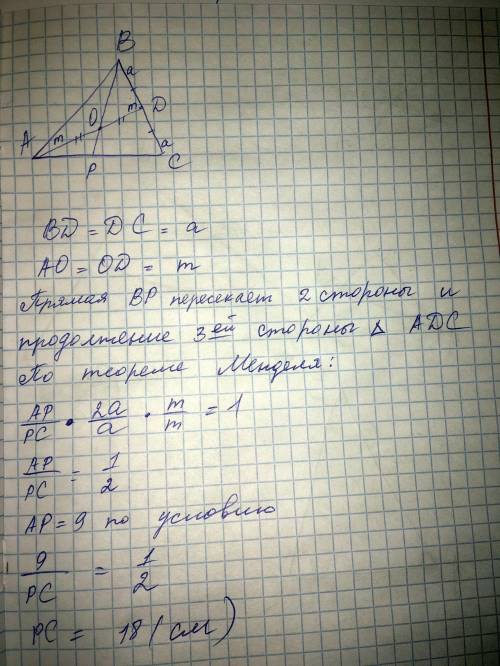 B
a
D
m
O
m
A
a
P
C
BD = DC = a
AO = OD = m
Прямая BP пересекает 2 стороны и
продолжение 3ей стороны Δ ADC
По теореме Менделя:
AP/PC · 2a/a · m/m = 1
AP/PC = 1/2
AP = 9 по условию
9/PC = 1/2
PC = 18 (см)